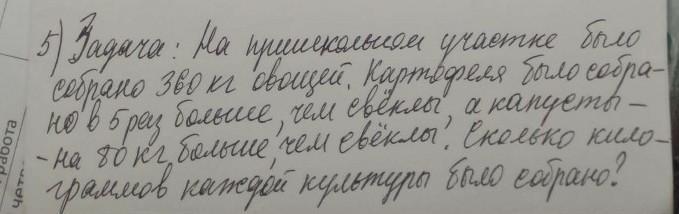 5) Задача: На пришкольном участке было
собрано 360 кг овощей. Картофеля было собра-
но в 5 раз больше, чем свёклы, а капусты-
-на 80 кг больше, чем свёклы. Сколько кило-
граммов каждой культуры было собрано?
работа
четв